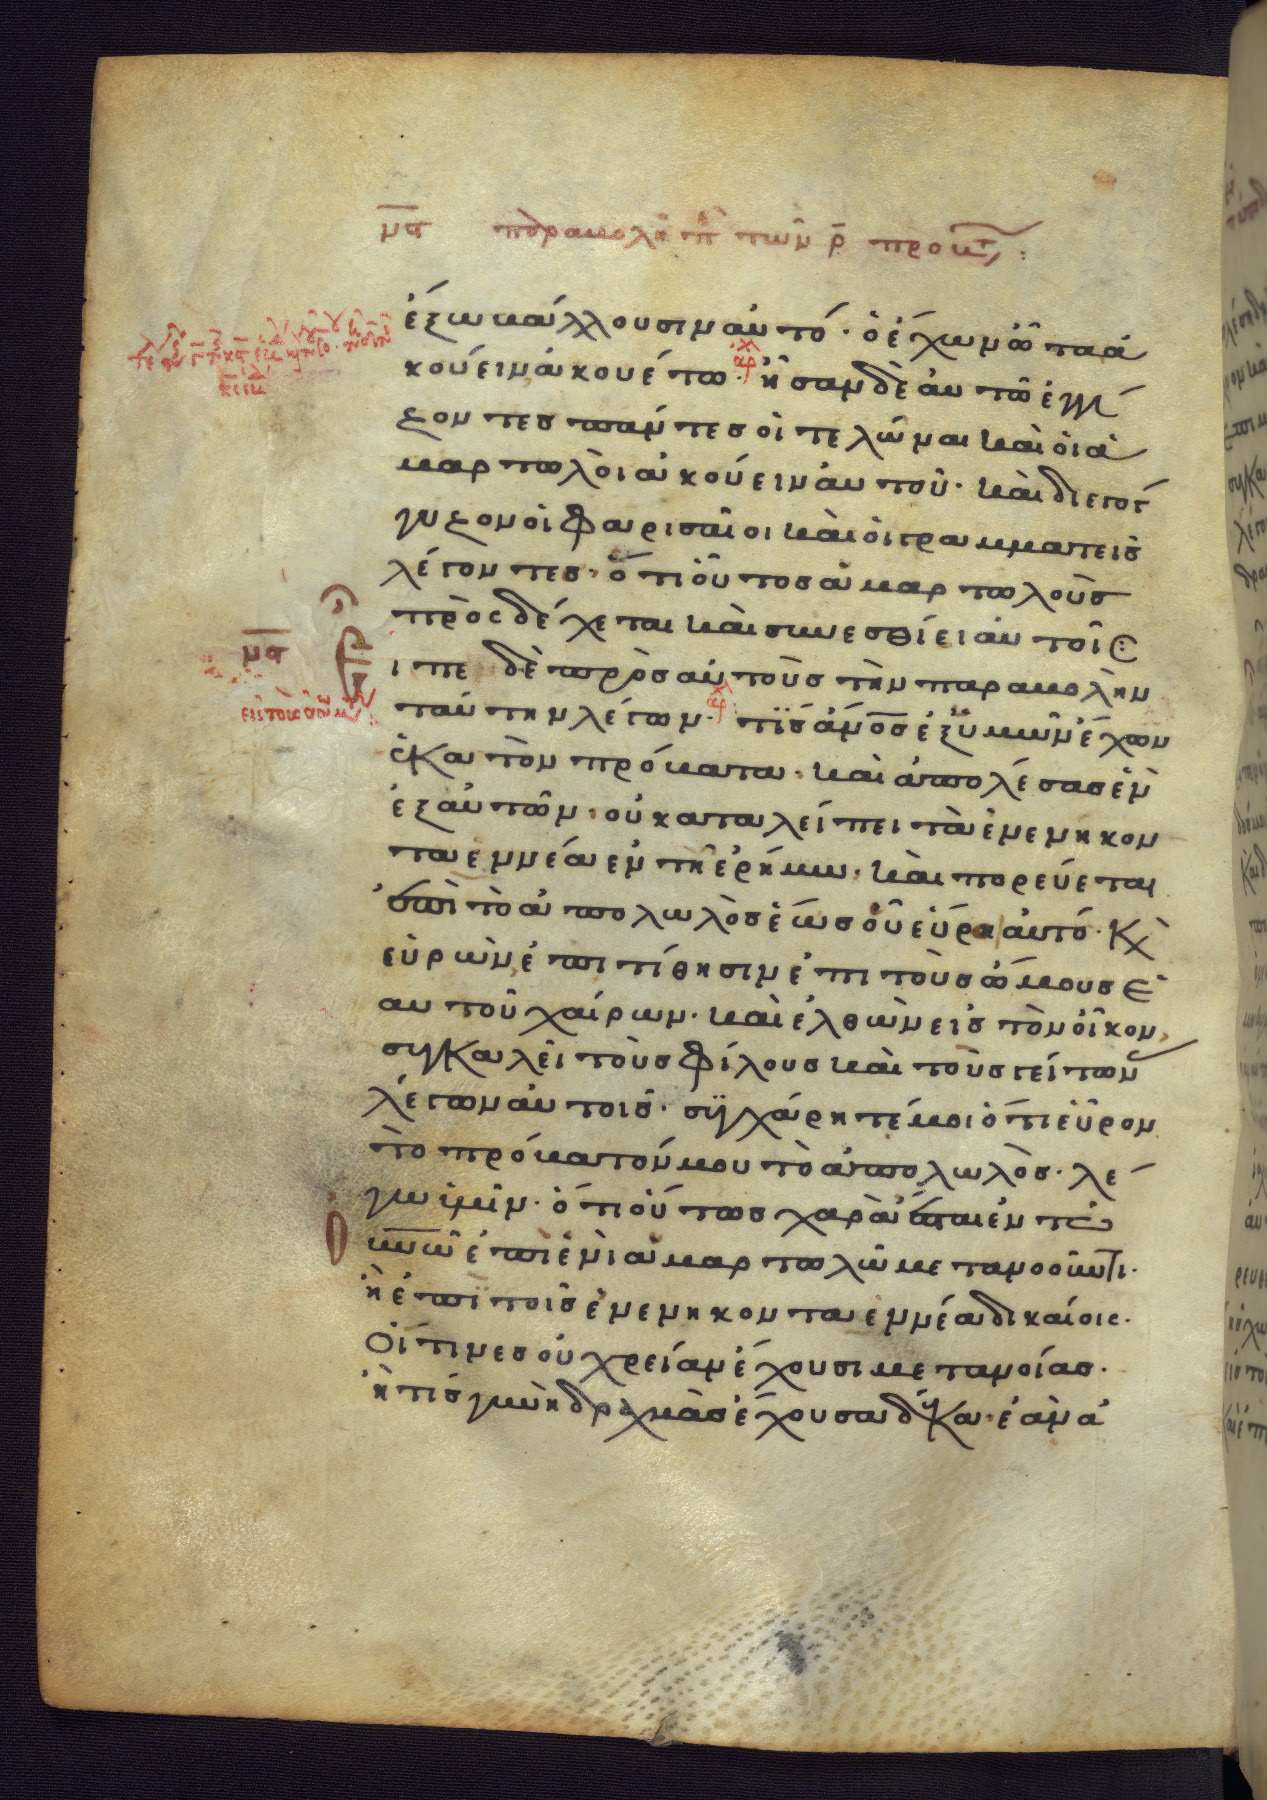 μα παραβολὴ πε τῶν ρ προβάτ :
ἔξω βάλλουσιν αὐτό· ὁ ἔχων ὦτα ἀ
κούειν ἀκουέτω· ἦσαν δὲ αὐτῶ ἐγγί
ζοντες πάντες οἱ τελῶναι καὶ οἱ ἁ
μαρτωλοὶ ἀκούειν αὐτοῦ· καὶ διεγόγ
γυζον οἱ φαρισαῖοι καὶ οἱ γραμματεῖς
λέγοντες· ὅτι οὗτος ἁμαρτωλοὺς
προσδέχεται καὶ συνεσθίει αὐτοῖς· Ε
ἶπε δὲ πρὸς αὐτοὺς τὴν παραβολὴν
μα
ταύτην λέγων· τίς ἄνος ἐξ ὑμῶν ἔχων
ἑκατὸν πρόβατα· καὶ ἀπολέσας ἓν
ἐξ αὐτῶν· οὐ καταλείπει τὰ ἐνενηκον
ταεννέα ἐν τῆ ἐρήμω· καὶ πορεύεται
ἐπὶ τὸ ἀπολωλὸς ἕως οὗ εὕρη αὐτό· Κ
εὑρὼν ἐπιτίθησιν ἐπὶ τοὺς ὤμους ἑ
αυτοῦ χαίρων· καὶ ἐλθὼν εἰς τὸν οἶκον
συγκαλεῖ τοὺς φίλους καὶ τοὺς γείτον
λέγων αὐτοῖς· συγχάρητέ μοι ὅτι εὗρον
τὸ πρόβατόν μου τὸ ἀπολωλὸς· λέ
γω ὑμῖν· ὅτι οὕτως χαρὰ ἔσται ἐν τῶ
οὐνῶ ἐπὶ ἑνὶ ἁμαρτωλῶ μετανοοῦντι·
ἢ ἐπὶ τοῖς ἐνενηκονταεννέα δικαίοις·
Οἵτινες οὐ χρείαν ἔχουσι μετανοίας·
ἢ τίς γυνὴ δραχμὰς ἔχουσα δέκα· ἐὰν ἀ